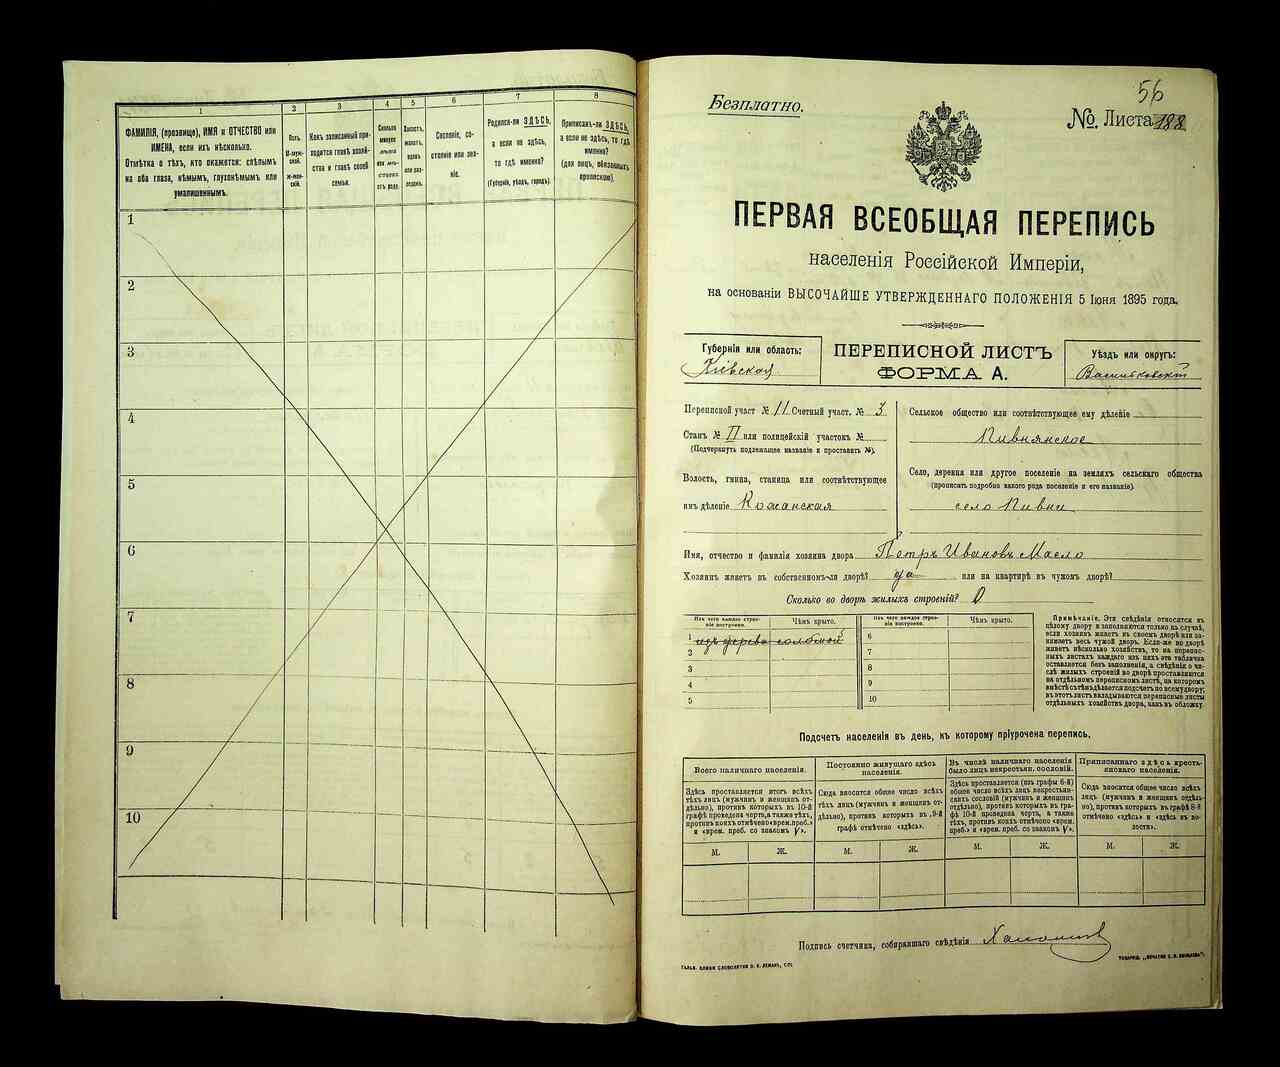 1
2
3
4
5
6
7
8
ФАМИЛІЯ, (прозвище), ИМЯ и ОТЧЕСТВО или
ИМЕНА, если ихъ нѣсколько.
Отмѣтка о тѣхъ, кто окажется: слѣпымъ
на оба глаза, нѣмымъ, глухонѣмымъ или
умалишеннымъ.
Полъ.
М-муж-
ской.
Ж-жен-
скій.
Какъ записанный при-
ходится главѣ хозяй-
ства и главѣ своей
семьи.
Сколько
минуло
лѣтъ
или мѣ-
сяцевъ
отъ роду.
Холостъ,
женатъ,
вдовъ
или раз-
веденъ.
Сословіе, со-
стояніе или зва-
ніе.
Родился-ли ЗДѢСЬ,
а если не здѣсь,
то гдѣ именно?
(Губернія, уѣздъ, городъ).
Приписанъ-ли ЗДѢСЬ,
а если не здѣсь, то гдѣ
именно?
(для лицъ, обязанныхъ
припискою).
1
2
3
4
5
6
7
8
9
10
56
Безплатно.
№. Листа 188
ПЕРВАЯ ВСЕОБЩАЯ ПЕРЕПИСЬ
населенія Россійской Имперіи,
на основаніи ВЫСОЧАЙШЕ УТВЕРЖДЕННАГО ПОЛОЖЕНІЯ 5 Іюня 1895 года.
Губернія или область:
Кіевская
ПЕРЕПИСНОЙ ЛИСТЪ
ФОРМА А.
Уѣздъ или округъ:
Васильковскій
Переписной участ. № 11 Счетный участ. № 3
Станъ № II или полицейскій участокъ №
(Подчеркнуть подлежащее названіе и проставить №).
Волость, гмина, станица или соотвѣтствующее
имъ дѣленіе Кожанская
Сельское общество или соотвѣтствующее ему дѣленіе
Пивнянское
Село, деревня или другое поселеніе на земляхъ сельскаго общества
(прописать подробно какого рода поселеніе и его названіе).
село Пивни
Имя, отчество и фамилія хозяина двора Петръ Ивановъ Масло
Хозяинъ живетъ въ собственномъ-ли дворѣ? да или на квартирѣ въ чужомъ дворѣ?
Сколько во дворѣ жилыхъ строеній? 0
Изъ чего каждое строе-
ніе построено.
Чѣмъ крыто.
Изъ чего каждое строе-
ніе построено.
Чѣмъ крыто.
1 изъ дерева соломой
2
3
4
5
6
7
8
9
10
Примѣчаніе. Эти свѣдѣнія относятся къ
цѣлому двору и заполняются только въ случаѣ,
если хозяинъ живетъ въ своемъ дворѣ или за-
нимаетъ весь чужой дворъ. Если-же во дворѣ
живетъ нѣсколько хозяйствъ, то на перепис-
ныхъ листахъ каждаго изъ нихъ эта табличка
оставляется безъ заполненія, а свѣдѣнія о чи-
слѣ жилыхъ строеній во дворѣ проставляются
на отдѣльномъ переписномъ листѣ, на которомъ
вмѣстѣ съ тѣмъ дѣлается подсчетъ по всему двору;
въ этотъ листъ вкладываются переписные листы
отдѣльныхъ хозяйствъ двора, какъ въ обложку.
Подсчетъ населенія въ день, къ которому пріурочена перепись.
Всего наличнаго населенія.
Постоянно живущаго здѣсь
населенія.
Въ числѣ наличнаго населенія
было лицъ некрестьян. сословій.
Приписаннаго здѣсь кресть-
янскаго населенія.
Здѣсь проставляется итогъ всѣхъ
тѣхъ лицъ (мужчинъ и женщинъ от-
дѣльно), противъ которыхъ въ 10-й
графѣ проведена черта, а также тѣхъ,
противъ коихъ отмѣчено «врем. преб.»
и «врем. преб. со знакомъ V».
Сюда вносится общее число всѣхъ
тѣхъ лицъ (мужчинъ и женщинъ от-
дѣльно), противъ которыхъ въ 9-й
графѣ отмѣчено «здѣсь».
Здѣсь проставляется (изъ графы 6-й)
общее число всѣхъ лицъ некрестьян-
скихъ сословій (мужчинъ и женщинъ
отдѣльно), противъ которыхъ въ гра-
фѣ 10-й проведена черта, а также
тѣхъ, противъ коихъ отмѣчено «врем.
преб.» и «врем. преб. со знакомъ V».
Сюда вносится общее число всѣхъ
лицъ (мужчинъ и женщинъ отдѣль-
но), противъ которыхъ въ графѣ 8-й
отмѣчено «здѣсь» и «здѣсь въ во-
лости».
М.
Ж.
М.
Ж.
М.
Ж.
М.
Ж.
Подпись счетчика, собиравшаго свѣдѣнія